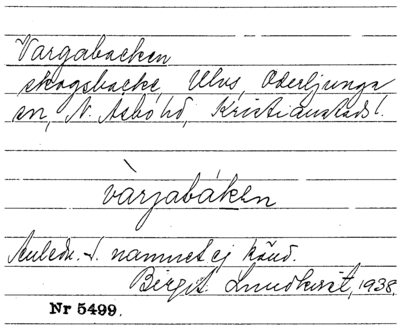 Vargabacken
skogsbacke, Ulvs, Oderljunga
sn, N. Åsbo hd, Kristianstads l.
vàrjabáken
Anledn. t. namnet ej känd.
Birgit Lundkvist, 1938.
Nr 5499.